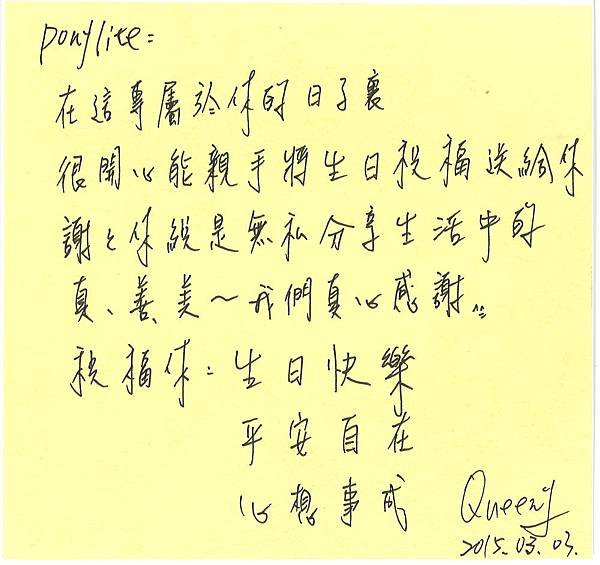 ponylite:
在這專屬於你的日子裏
很開心能親手將生日祝福送給你
謝謝你總是無私分享生活中的
真、善、美~我們真心感謝
祝福你:生日快樂
平安自在
心想事成
Queeny
2015.03.03.